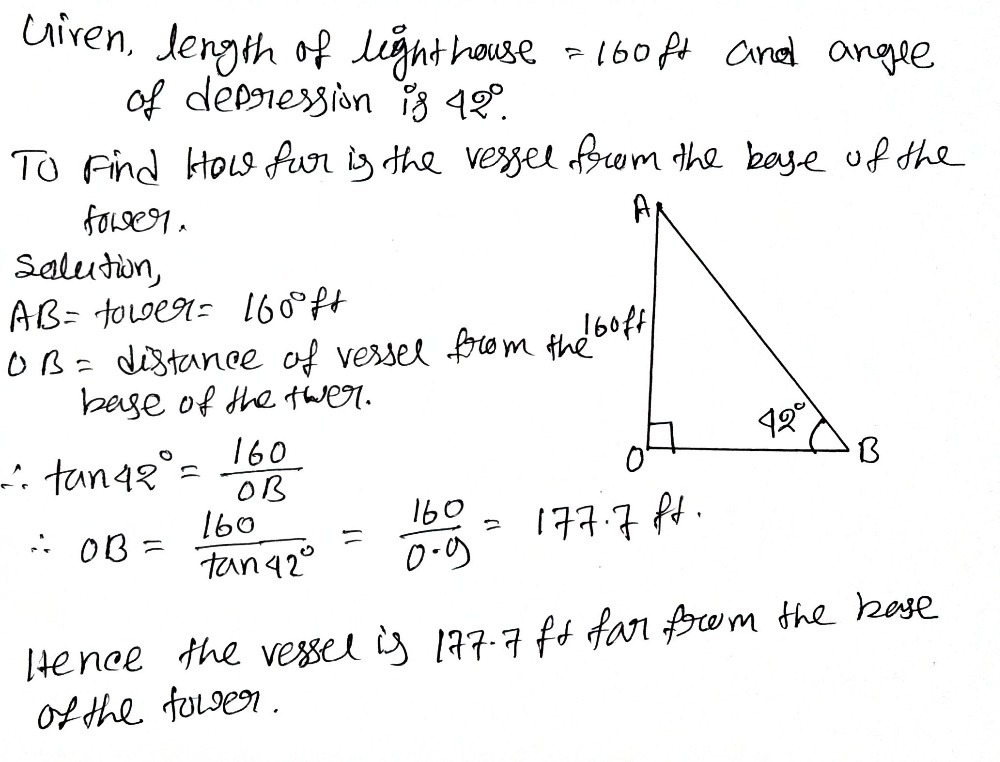 Given, length of lighthouse = 160ft and angle
of depression is 42°.
To Find How fur is the vessel from the base of the
tower.
Solution,
AB = tower = 160° ft
OB = distance of vessel from the
base of the twer.
∴ tan 42° = 160/OB
∴ OB = 160/tan 42° = 160/0.9 = 177.7 ft.
Hence the vessel is 177.7 ft far from the base
of the tower.
A
160ft
42°
O
B